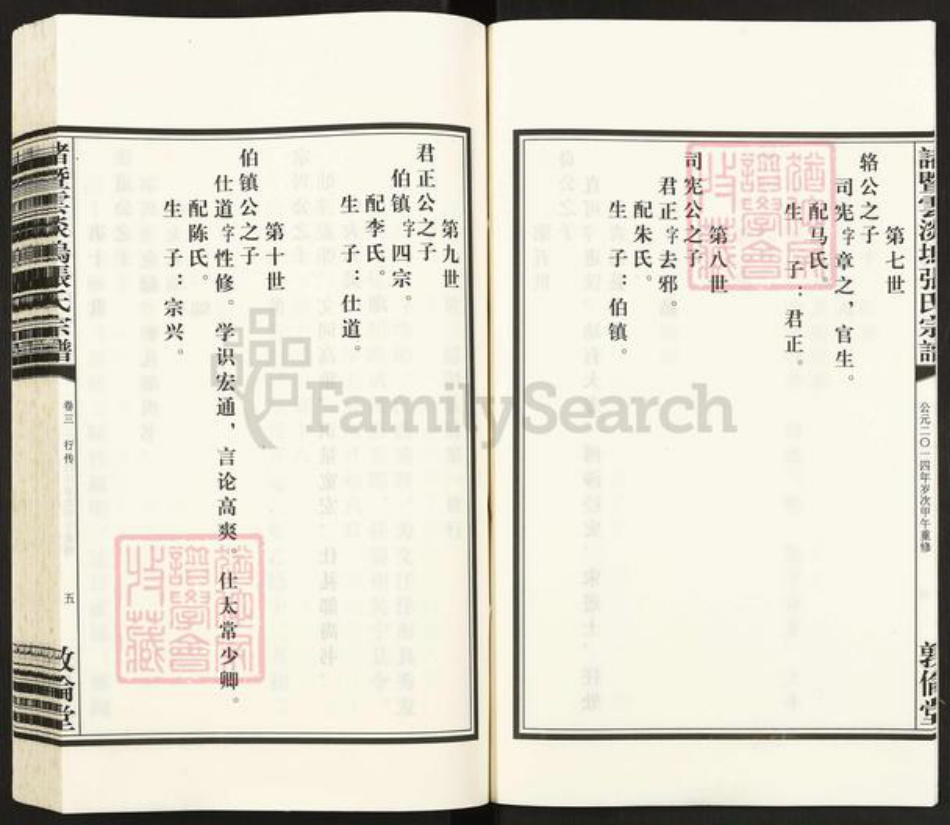 諸暨雲淡塢張氏宗譜
公元二〇一四年岁次甲午重修
敦倫堂
第七世
辂公之子
司宪字章之，官生。
配马氏。
生一子：君正。
第八世
司宪公之子
君正字去邪。
配朱氏。
生一子：伯镇。
第九世
君正公之子
伯镇字四宗。
配李氏。
生一子：仕道。
第十世
伯镇公之子
仕道字性修。学识宏通，言论高爽。仕太常少卿。
配陈氏。
生一子：宗兴。
諸暨雲淡塢張氏宗譜
卷三 行传
五
敦倫堂
譜學會
收藏
譜學會
收藏
FamilySearch